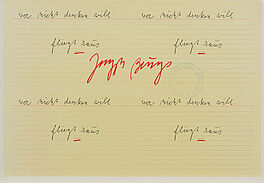 wer nicht denken will wer nicht denken will
fliegt raus fliegt raus
Joseph Beuys
wer nicht denken will wer nicht denken will
fliegt raus fliegt raus